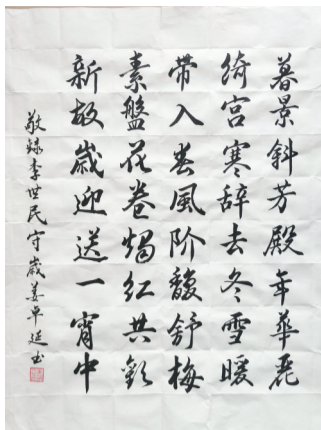 暮景斜芳殿年華麗
綺宮寒辭去冬雪暖
帶入春風阶馥舒梅
素盤花卷燭红共歡
新故歲迎送一宵中
敬録李世民守歲姜卓延书